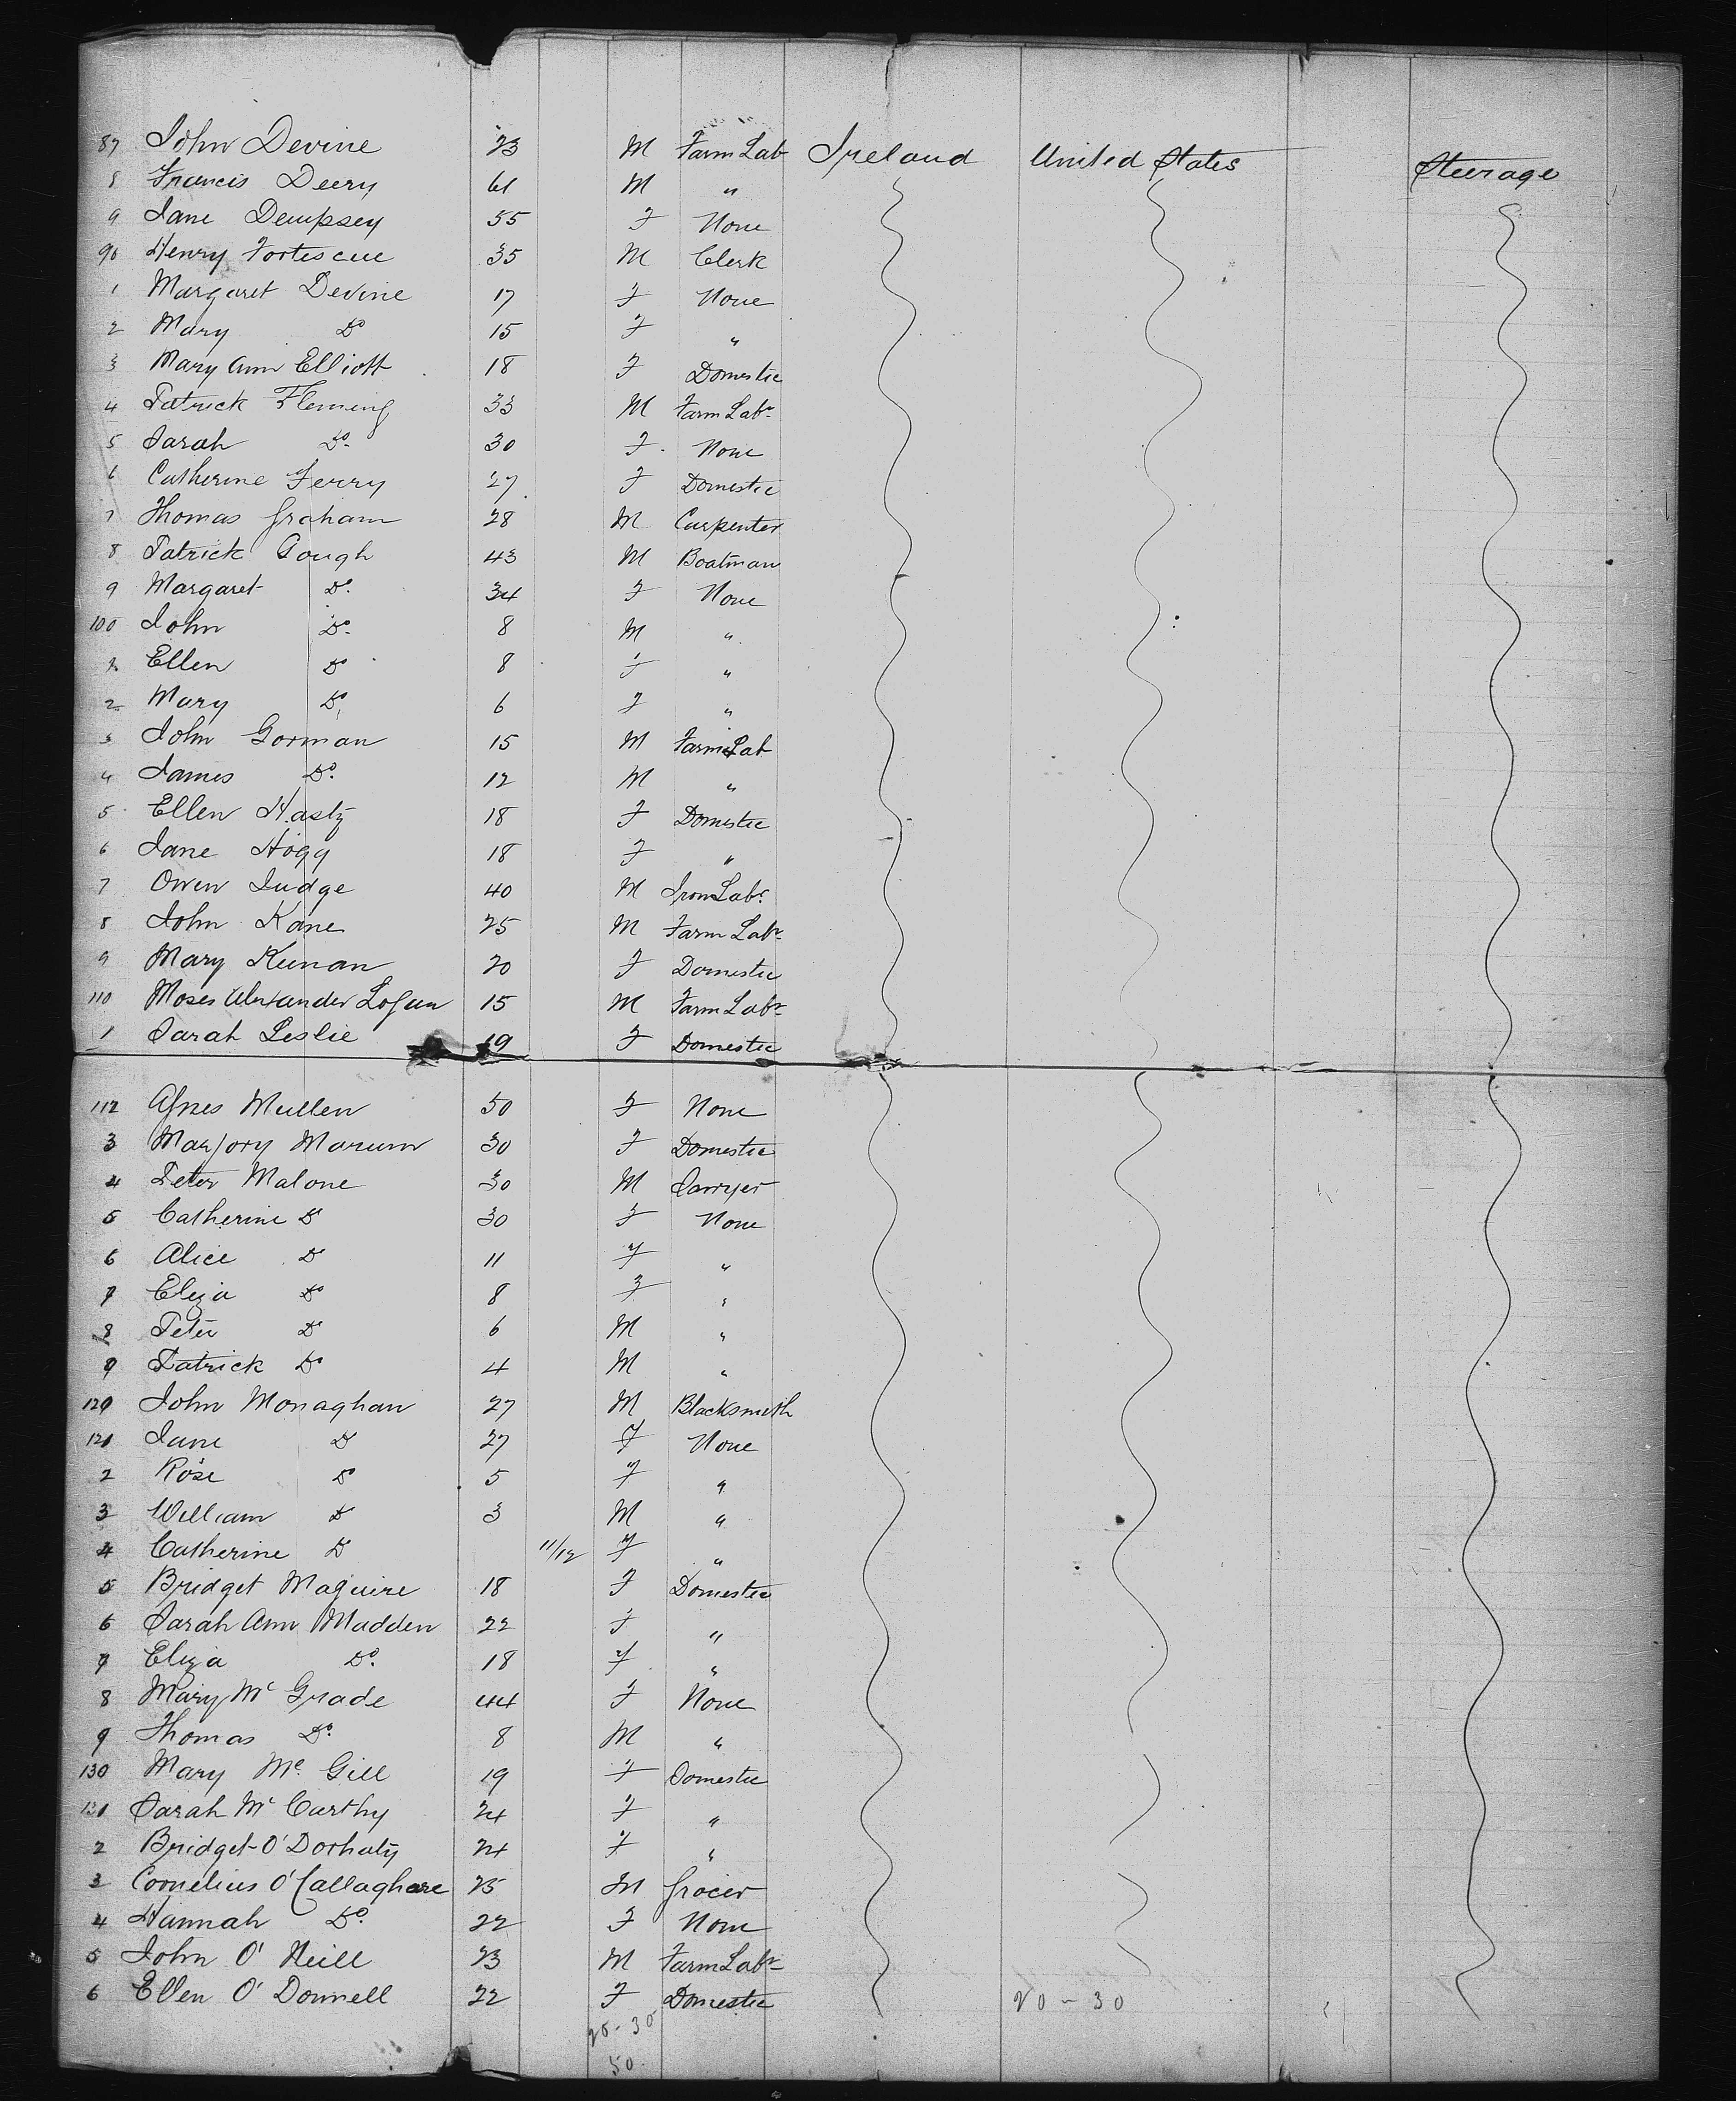 87 John Devine 23 M Farm Lab Ireland United States Steerage
8 Francis Deery 61 M "
9 Jane Dempsey 55 F None
90 Henry Fortescue 35 M Clerk
1 Margaret Devine 17 F None
2 Mary Do 15 F "
3 Mary Ann Elliott 18 F Domestic
4 Patrick Fleming 33 M Farm Labr
5 Sarah Do 30 F None
6 Catherine Ferry 27 F Domestic
7 Thomas Graham 28 M Carpenter
8 Patrick Gough 43 M Boatman
9 Margaret Do 34 F None
100 John Do 8 M "
1 Ellen Do 8 F "
2 Mary Do 6 F "
3 John Gorman 15 M Farm Lab
4 James Do 12 M "
5 Ellen Hasty 18 F Domestic
6 Jane Hogg 18 F "
7 Owen Judge 40 M Iron Labr
8 John Kane 25 M Farm Labr
9 Mary Keenan 20 F Domestic
110 Moses Alexander Logan 15 M Farm Labr
1 Sarah Leslie 19 F Domestic
112 Agnes Mullen 50 F None
3 Marjory Marum 30 F Domestic
4 Peter Malone 30 M Sawyer
5 Catherine Do 30 F None
6 Alice Do 11 F "
7 Eliza Do 8 F "
8 Peter Do 6 M "
9 Patrick Do 4 M "
120 John Monaghan 27 M Blacksmith
121 Jane Do 27 F None
2 Rose Do 5 F "
3 William Do 3 M "
4 Catherine Do 11/12 F "
5 Bridget Maguire 18 F Domestic
6 Sarah Ann Madden 22 F "
7 Eliza Do 18 F "
8 Mary Mc Grade 44 F None
9 Thomas Do 8 M "
130 Mary Mc Gill 19 F Domestic
131 Sarah Mc Carthy 24 F "
2 Bridget O'Dorhaty 24 F "
3 Cornelius O'Callaghane 25 M Grocer
4 Hannah Do 22 F None
5 John O'Neill 23 M Farm Labr
6 Ellen O'Donnell 22 F Domestic 20-30
20-30
50